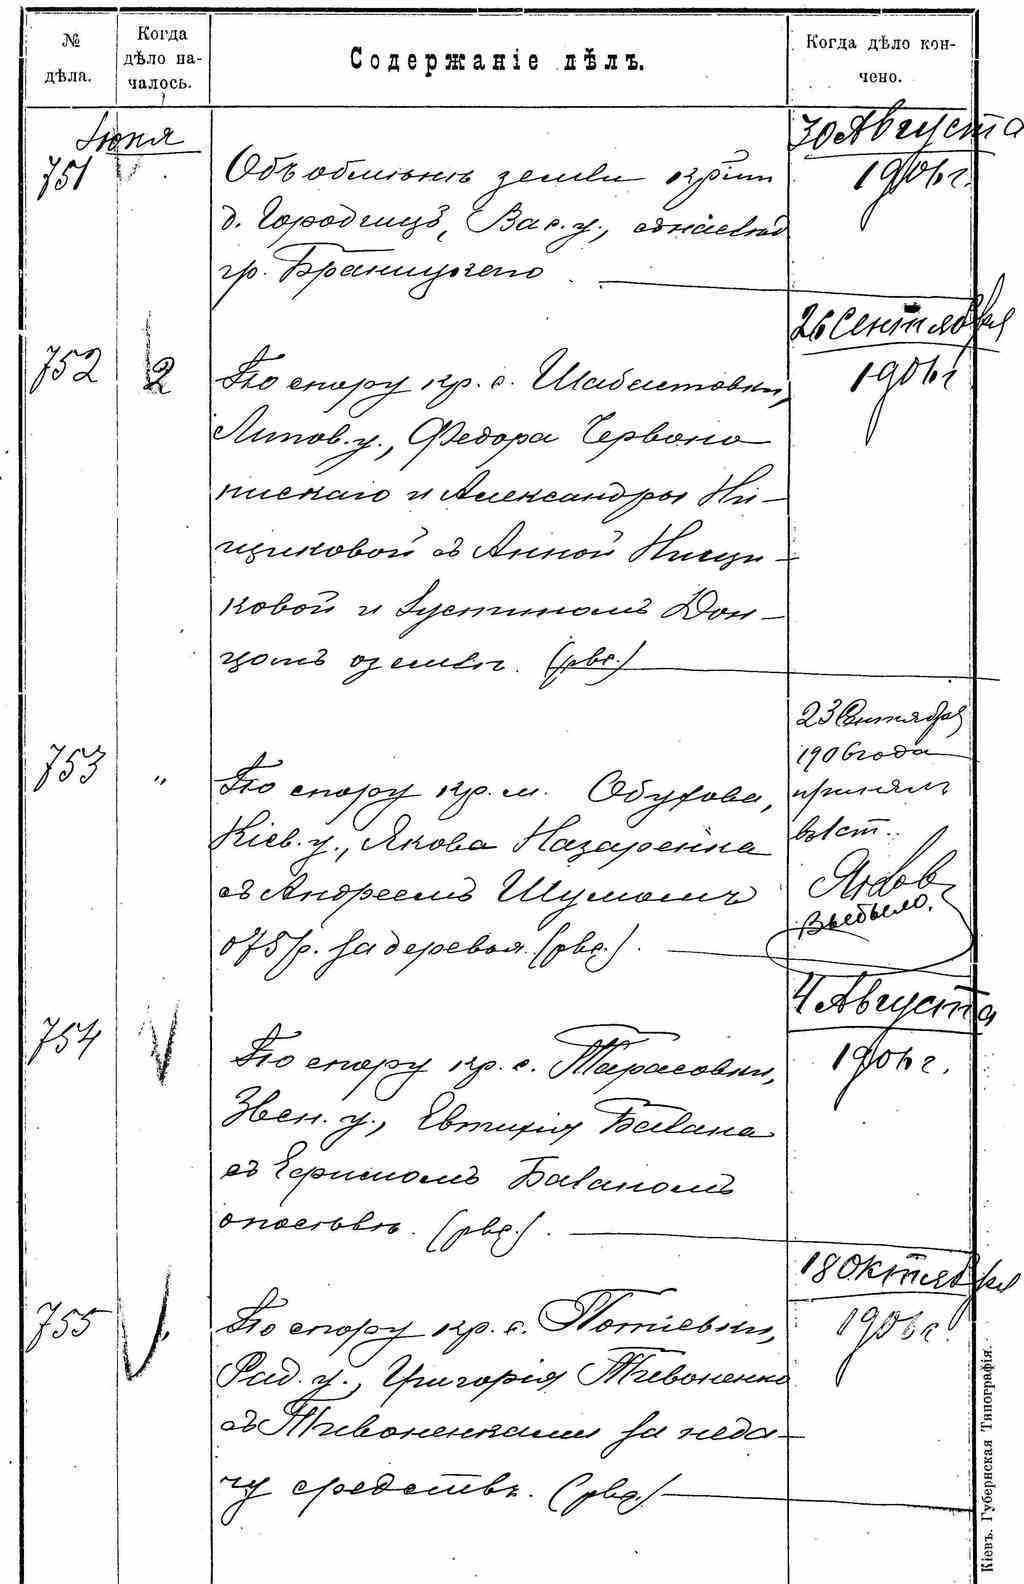 № дѣла.
Когда дѣло началось.
Содержаніе дѣлъ.
Когда дѣло кончено.
Іюня
751
Объ обмѣнѣ земли кр-нъ
д. Городищъ, Вас. у., съ
гр. Браницкаго
30 Августа
1906 г.
752
2
По спору кр. с. Шабастовки,
Липов. у., Федора Червоно
пискаго и Александры Ни-
щиковой съ Анной Нищи-
ковой и Іустиномъ Дон-
цомъ о землѣ.
26 Сентября
1906 г
753
"
По спору кр. м. Обухова,
Кіев. у., Якова Назаренка
съ Андреемъ Шумомъ
о 75 р. за деревья.
23 Сентября
1906 года
принялъ
Выбыло.
754
По спору кр. с. Тарасовки,
Звен. у., Евтихія Бавана
съ Ефимомъ Баваномъ
о посѣвѣ.
4 Августа
1906 г.
755
По спору кр. с. Потіевки,
Рад. у., Григорія Тивоненко
съ Тивоненками за неда-
чу средствъ.
18 Октября
1906 г.
Кіевъ. Губернская Типографія.